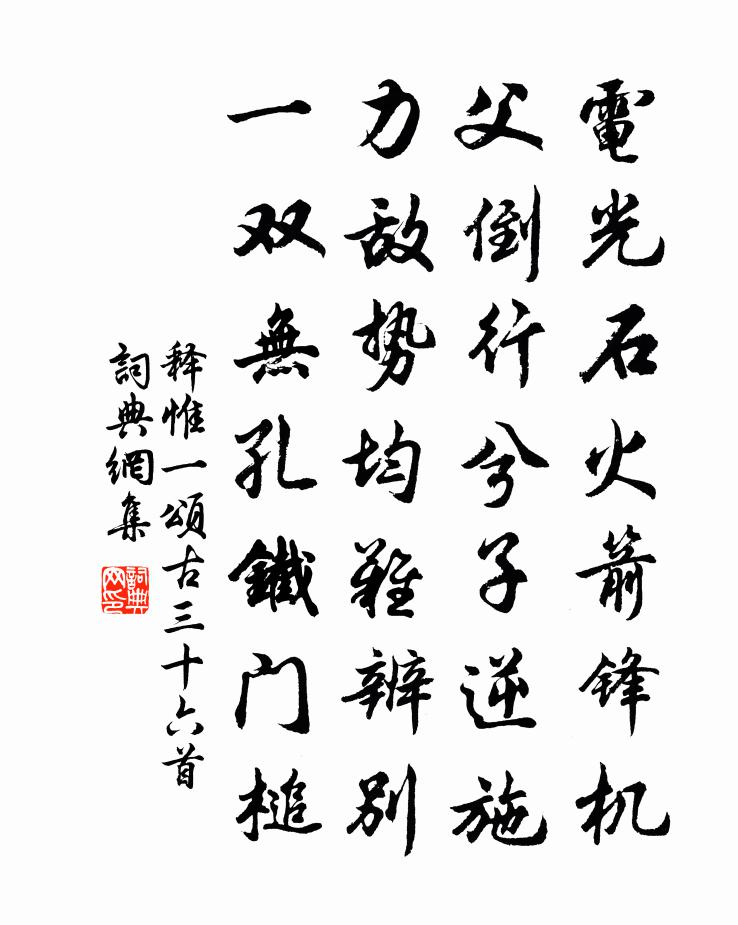 電光石火箭锋机
父倒行兮子逆施
力敌势均難辨别
一双無孔鐵门槌
释惟一頌古三十六首
詞典網集
詞典网印